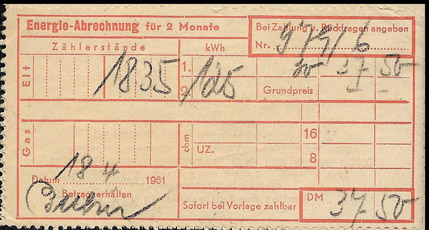 Energie-Abrechnung für 2 Monate
Bei Zahlung u. Rückfragen angeben
Nr. 979/6
Zählerstände kWh
Elt 1835 1. 125 37 50
2. Grundpreis
Gas cbm UZ. 16
8
18 4
Datum 1961
Betrag erhalten
Sofort bei Vorlage zahlbar DM 37 50